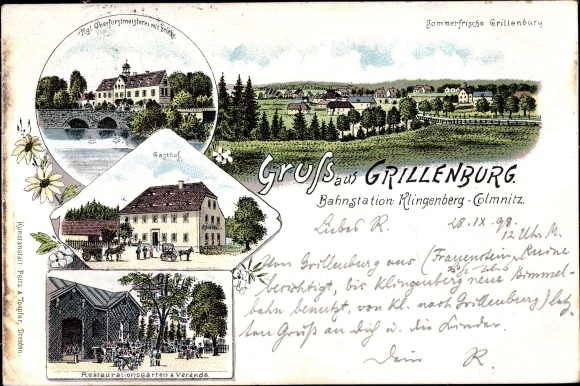 Kgl. Oberforstmeisterei mit Brücke.
Sommerfrische Grillenburg
Gasthof.
Gruß aus GRILLENBURG.
Bahnstation: Klingenberg-Colmnitz.
Liebes R. 28.IX.98.
12 Uhr M.
Von Grillenburg aus (Frauenstein, Ruine
besichtigt, bis Klingenberg neue Bimmel-
bahn benutzt, von Kl. nach Grillenburg)
Gruß an dich u. die Kinder.
Dein R.
Restaurationsgarten u. Veranda
Kunstanstalt Peitz & Toepfer, Dresden.